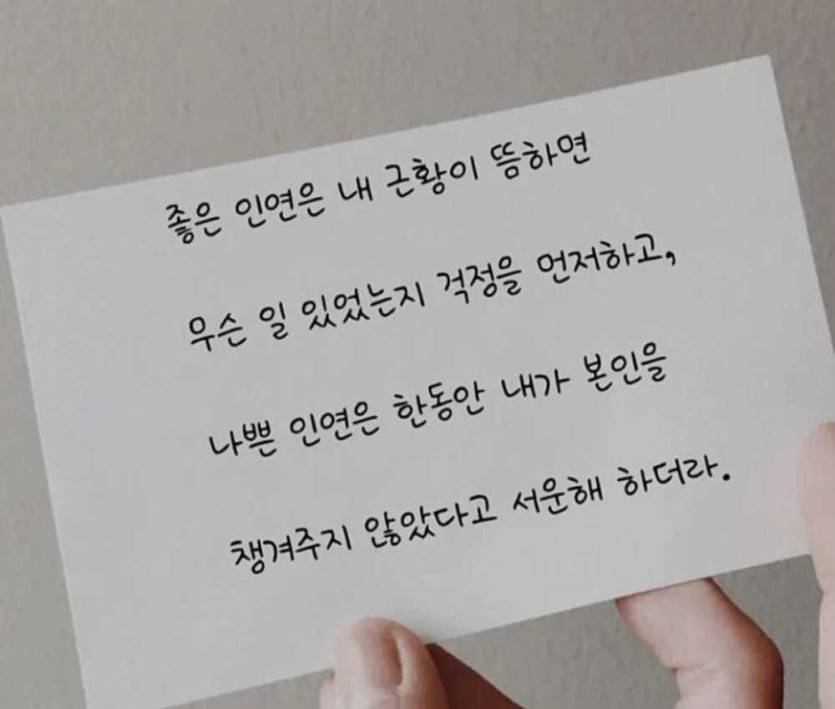 좋은 인연은 내 근황이 뜸하면
무슨 일 있었는지 걱정을 먼저하고,
나쁜 인연은 한동안 내가 본인을
챙겨주지 않았다고 서운해 하더라.